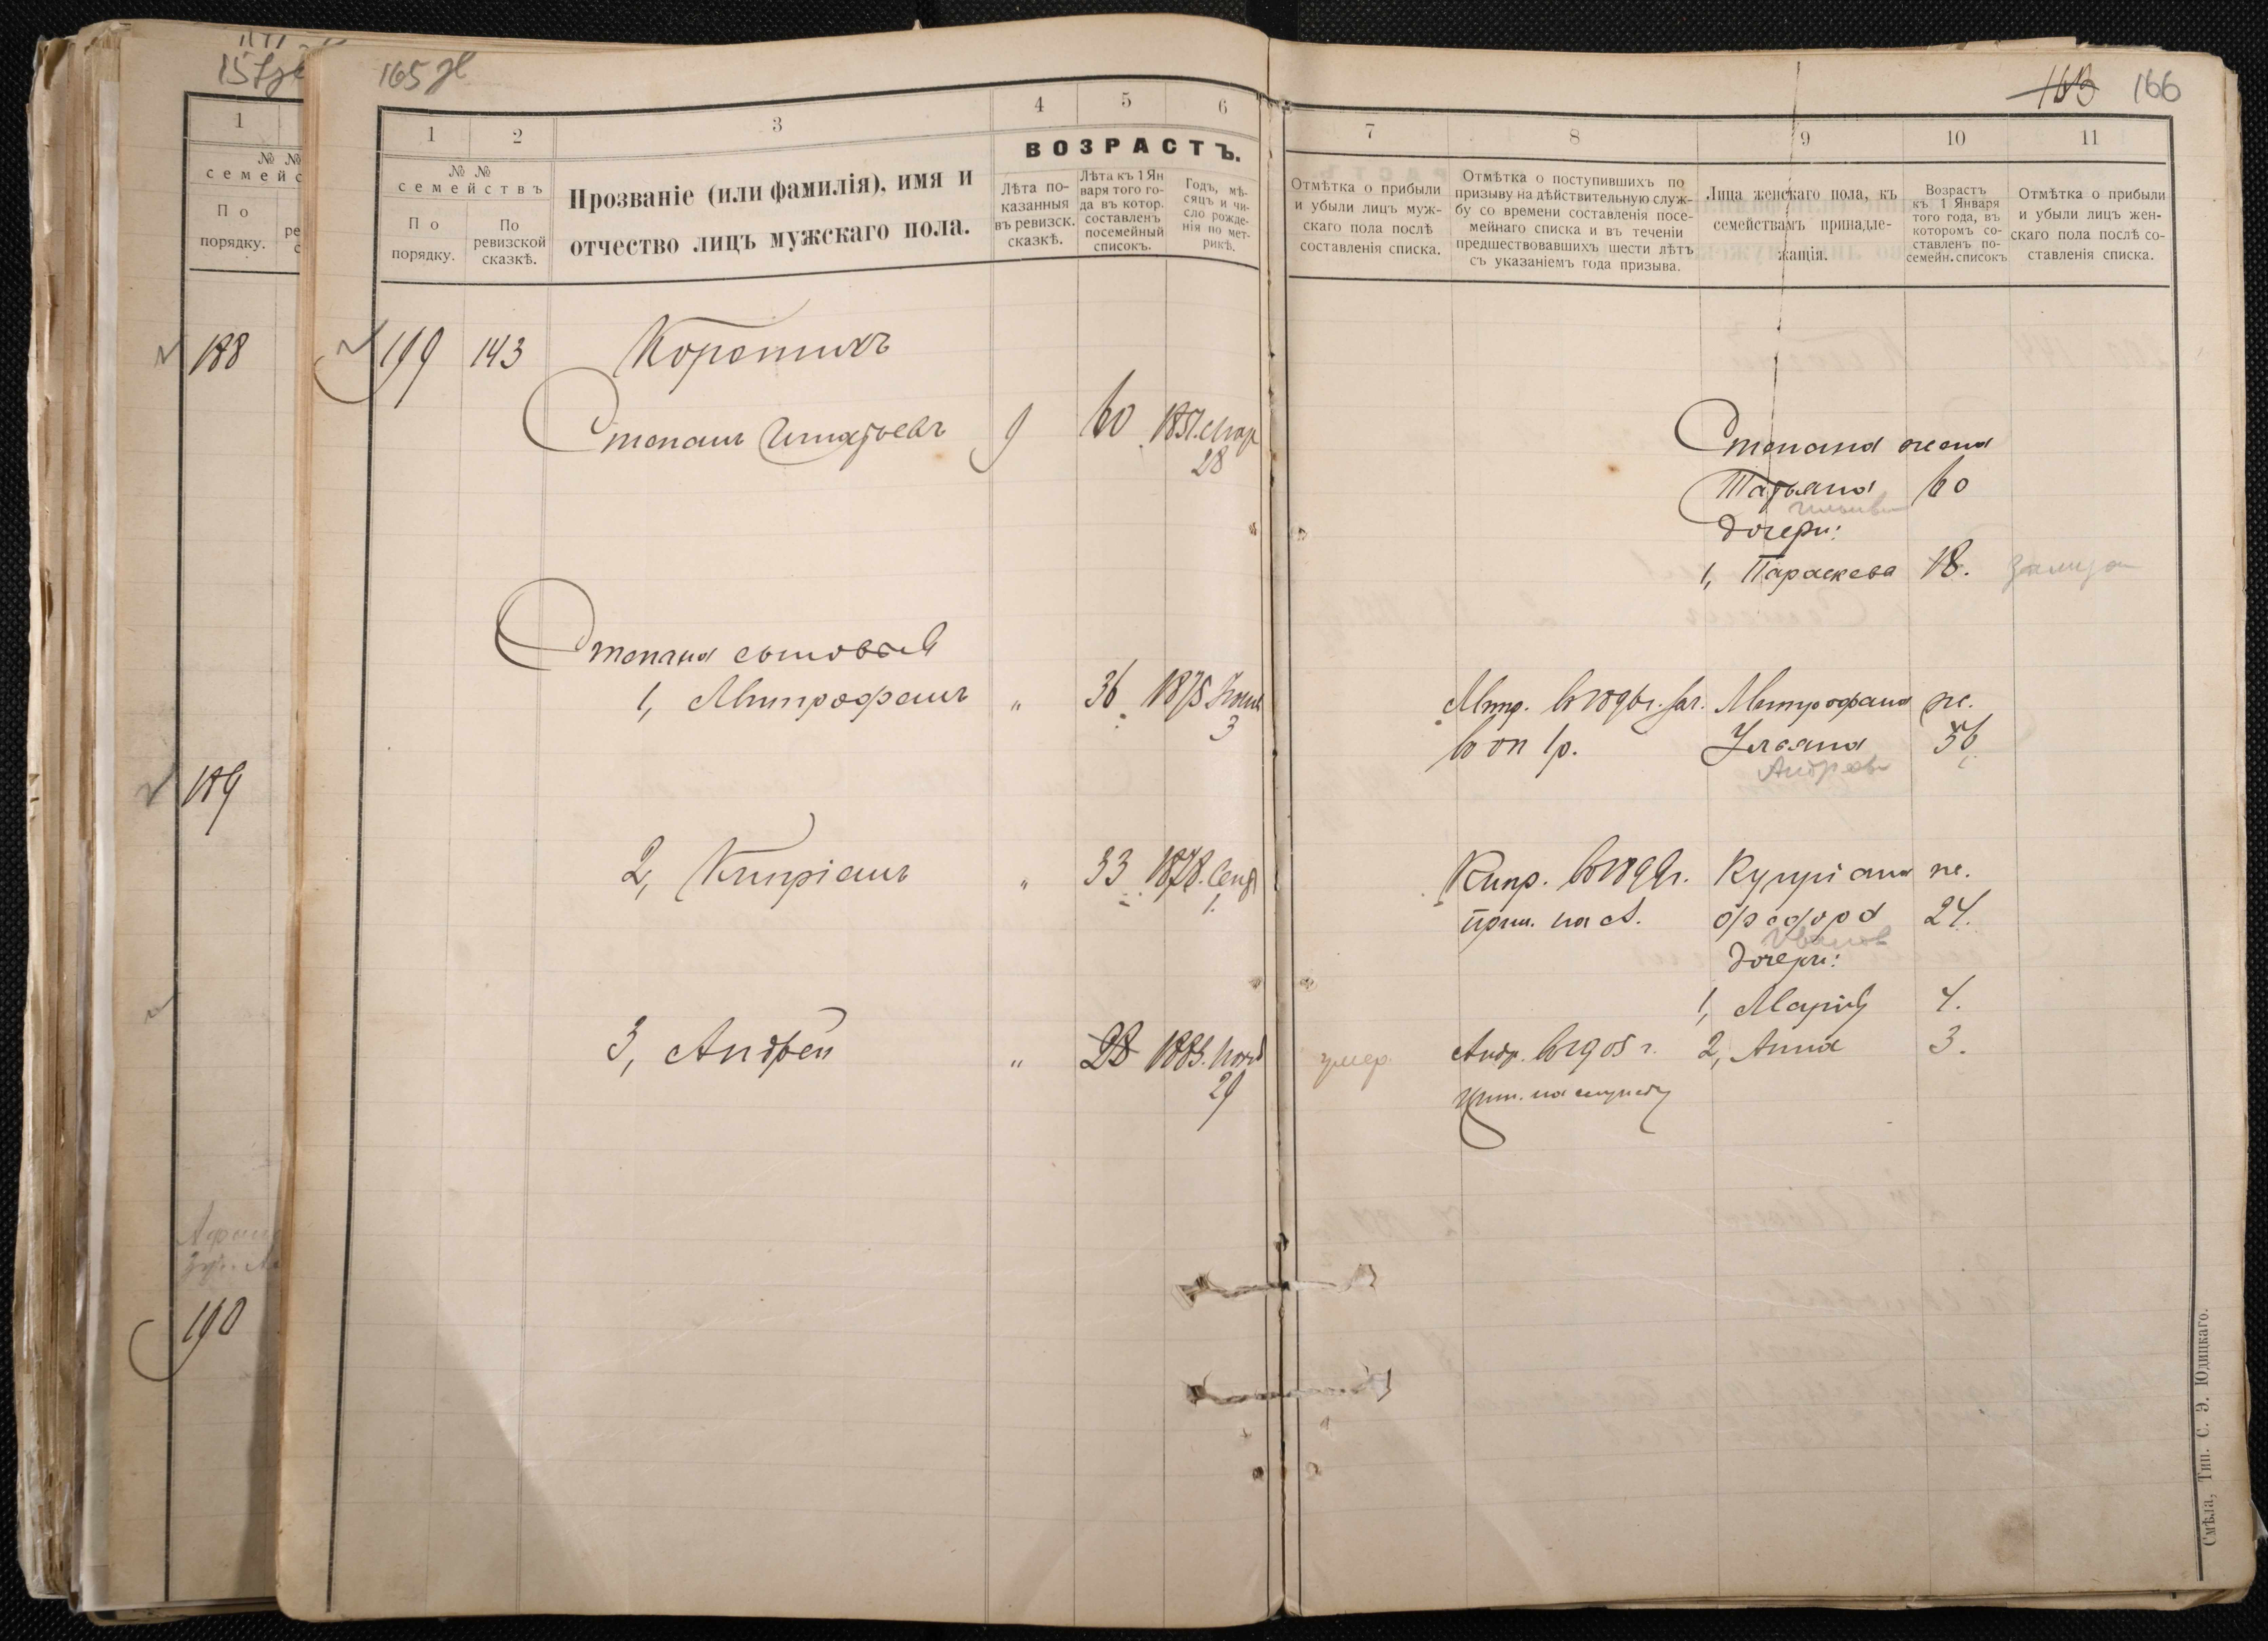 165
166
1
2
3
4
5
6
№ №
семействъ
По порядку.
По ревизской сказкѣ.
Прозваніе (или фамилія), имя и
отчество лицъ мужскаго пола.
ВОЗРАСТЪ.
Лѣта по-
казанныя
въ ревизск.
сказкѣ.
Лѣта къ 1 Ян
варя того го-
да въ котор.
составленъ
посемейный
списокъ.
Годъ, мѣ-
сяцъ и чи-
сло рожде-
нія по мет-
рикѣ.
7
8
9
10
11
Отмѣтка о прибыли
и убыли лицъ муж-
скаго пола послѣ
составленія списка.
Отмѣтка о поступившихъ по
призыву на дѣйствительную служ-
бу со времени составленія посе-
мейнаго списка и въ теченіи
предшествовавшихъ шести лѣтъ
съ указаніемъ года призыва.
Лица женскаго пола, къ
семействамъ принадле-
жащія.
Возрастъ
къ 1 Января
того года, въ
которомъ со-
ставленъ по-
семейн. списокъ
Отмѣтка о прибыли
и убыли лицъ жен-
скаго пола послѣ со-
ставленія списка.
1
№ №
По
порядку.
188
189
190
199 143
Степанъ Игнатьевъ 9 60 1851. Мар
28
Степана жена
Татьяна 60
дочери:
1, Параскева 18.
Степана сыновья
1, Митрофанъ " 36 1875
3
Митр. Митрофана ж.
Ульяна 36
Андреев
2, Кипріанъ " 33 1878. Сент
1.
Кипр. Купріана ж.
прин. на с. 24.
дочери:
1, Марія 4.
3, Андрей " 28 1883. Нояб
29
умер
Андр. в 1905 г. 2, Анна 3.
прин. на службу
Смѣла, Тип. С. Э. Юдицкаго.